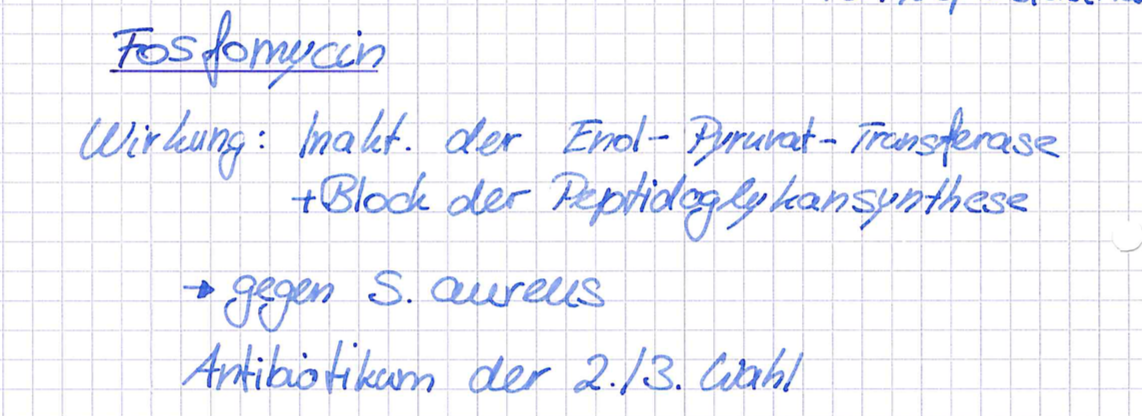 Fosfomycin
Wirkung: Inakt. der Enol-Pyruvat-Transferase
+Block der Peptidoglykansynthese
→ gegen S. aureus
Antibiotikum der 2./3. Wahl